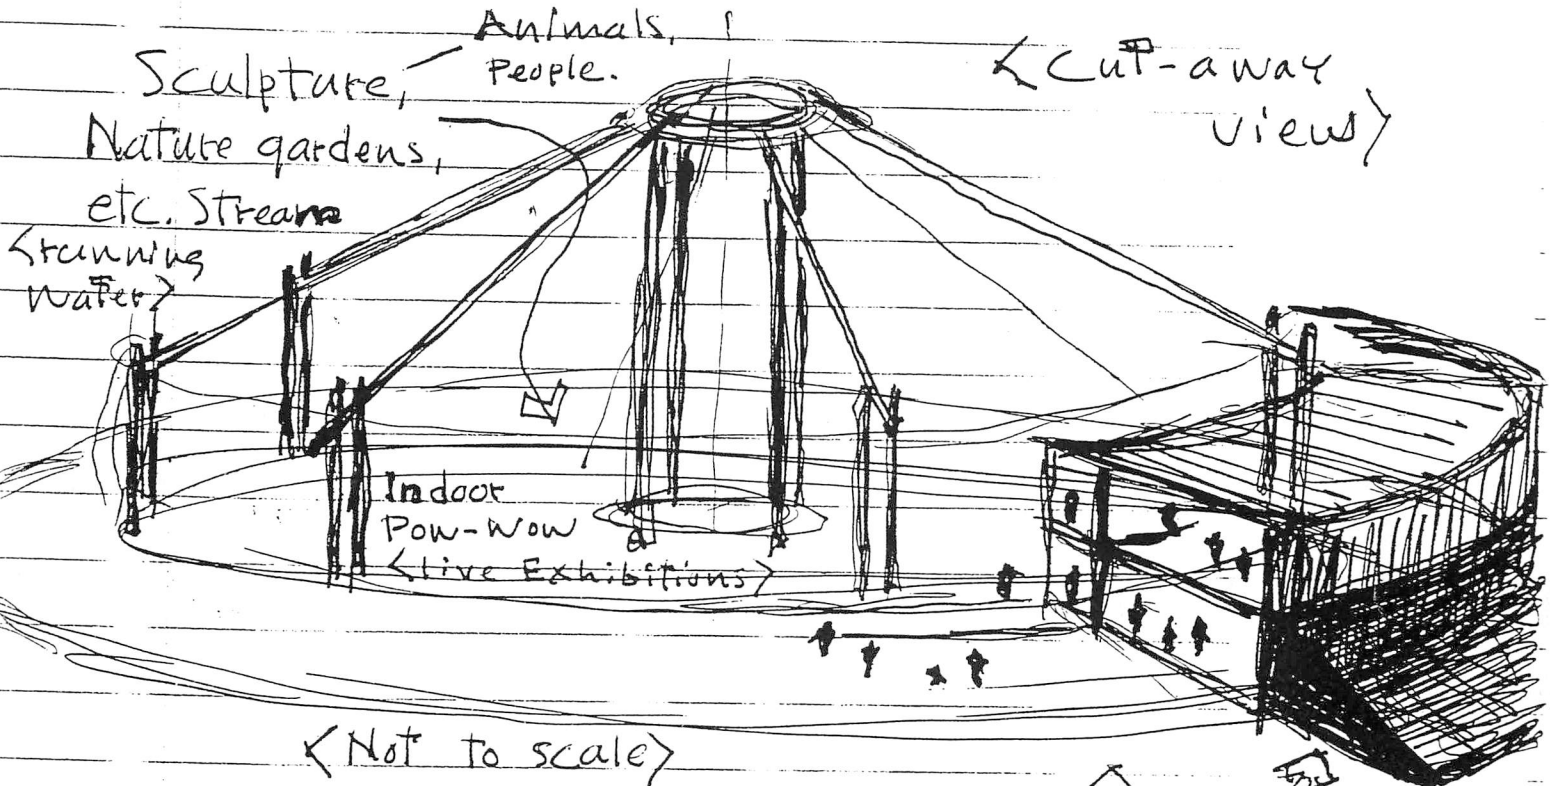 Animals,
People.
Sculpture,
Nature gardens,
etc. Stream
<running
water>
<Cut-away
view>
Indoor
Pow-Wow
<Live Exhibitions>
<Not to scale>